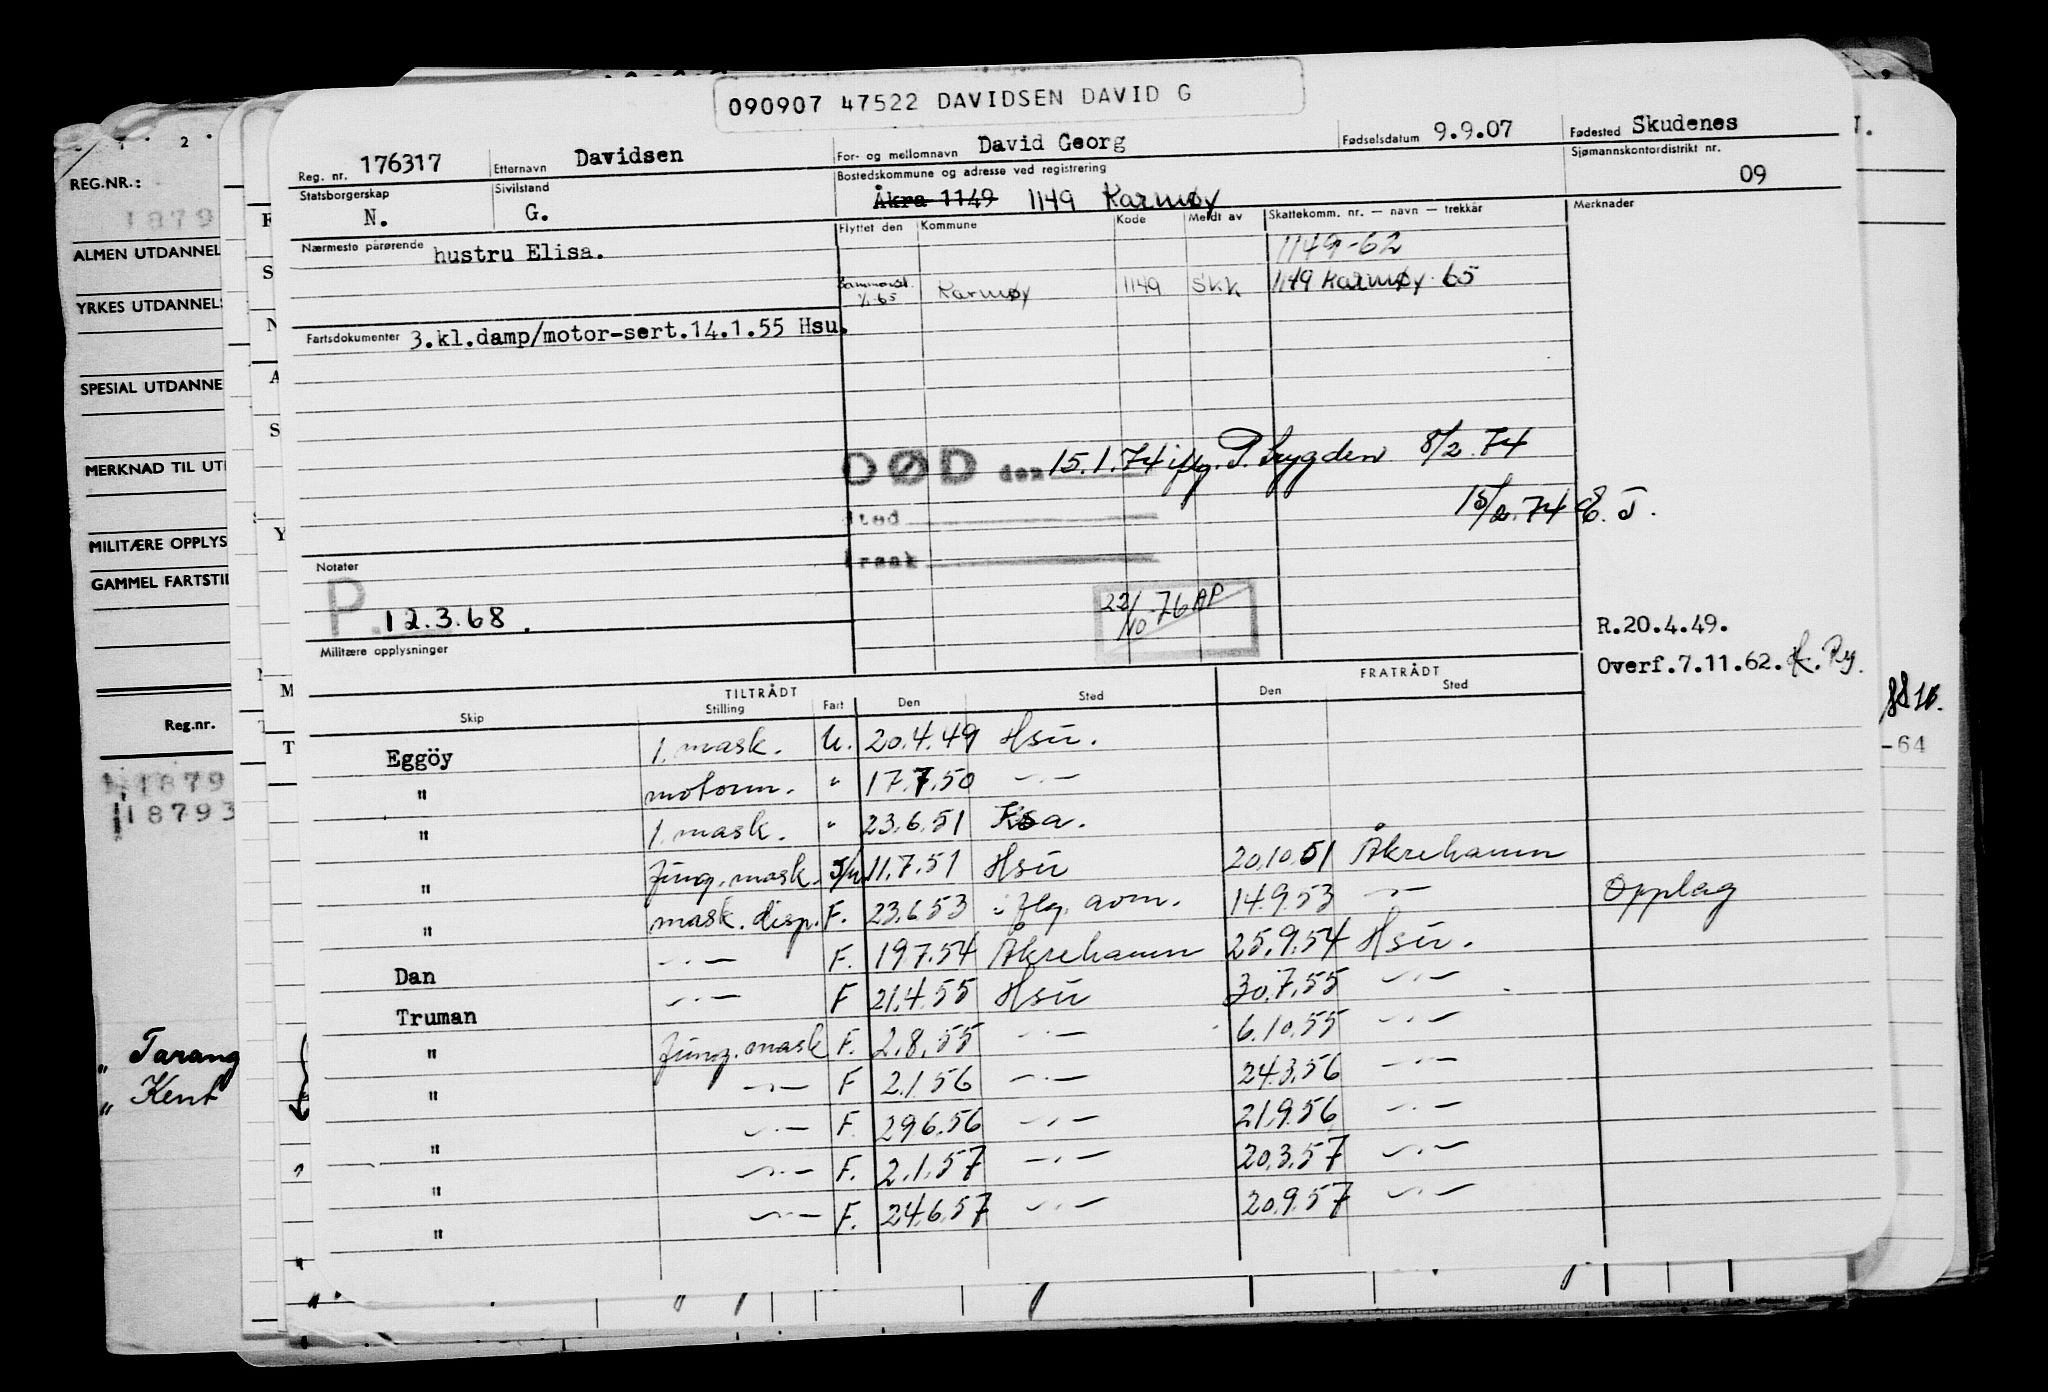 090907 47522 DAVIDSEN DAVID G
Reg. nr. 176317 Etternavn Davidsen For- og mellomnavn David Georg Fødselsdatum 9.9.07 Fødested Skudenes
Statsborgerskap N. Sivilstand G. Bostedskommune og adresse ved registrering Åkra 1149 1149 Karmøy Sjømannskontordistrikt nr. 09
Nærmeste pårørende hustru Elisa. Flyttet den Kommune Kode Meldt av Skattekomm. nr. — navn — trekkår Merknader
1149-62
1/1-65 Karmøy 1149 Skk 1149 Karmøy 65
Fartsdokumenter 3.kl.damp/motor-sert.14.1.55 Hsu.
DØD den 15.1.74 iflg. P. 8/2.74
Sted 15/2.74 E. J.
Årsak
Notater
P. 12.3.68.
22/10-76 AP
Militære opplysninger
R.20.4.49.
Overf.7.11.62.
TILTRÅDT FRATRÅDT
Skip Stilling Fart Den Sted Den Sted
Eggöy 1. mask. U. 20.4.49 Hsu.
" motorm. " 17.7.50 -·-
" 1. mask. " 23.6.51 Ksa.
" Jung. mask. S/U 11.7.51 Hsu 20.10.51 Åkrehamn
" mask. disp. F. 23.6.53 iflg. avm. 14.9.53 -·- Opplag
Dan -·- F. 19.7.54 Åkrehamn 25.9.54 Hsu.
Truman -·- F 21.4.55 Hsu 30.7.55 -·-
" Jung. mask F. 2.8.55 -·- 6.10.55 -·-
" -·- F 2.1.56 -·- 24.3.56 -·-
" -·- F. 29.6.56 -·- 21.9.56 -·-
" -·- F. 2.1.57 -·- 20.3.57 -·-
" -·- F. 24.6.57 -·- 20.9.57 -·-
REG.NR.:
1879
ALMEN UTDANNEL
YRKES UTDANNEL
SPESIAL UTDANNE
MERKNAD TIL UT
MILITÆRE OPPLYS
GAMMEL FARTSTI
Reg.nr.
1879
18793
" Tarang
" Kent
-64